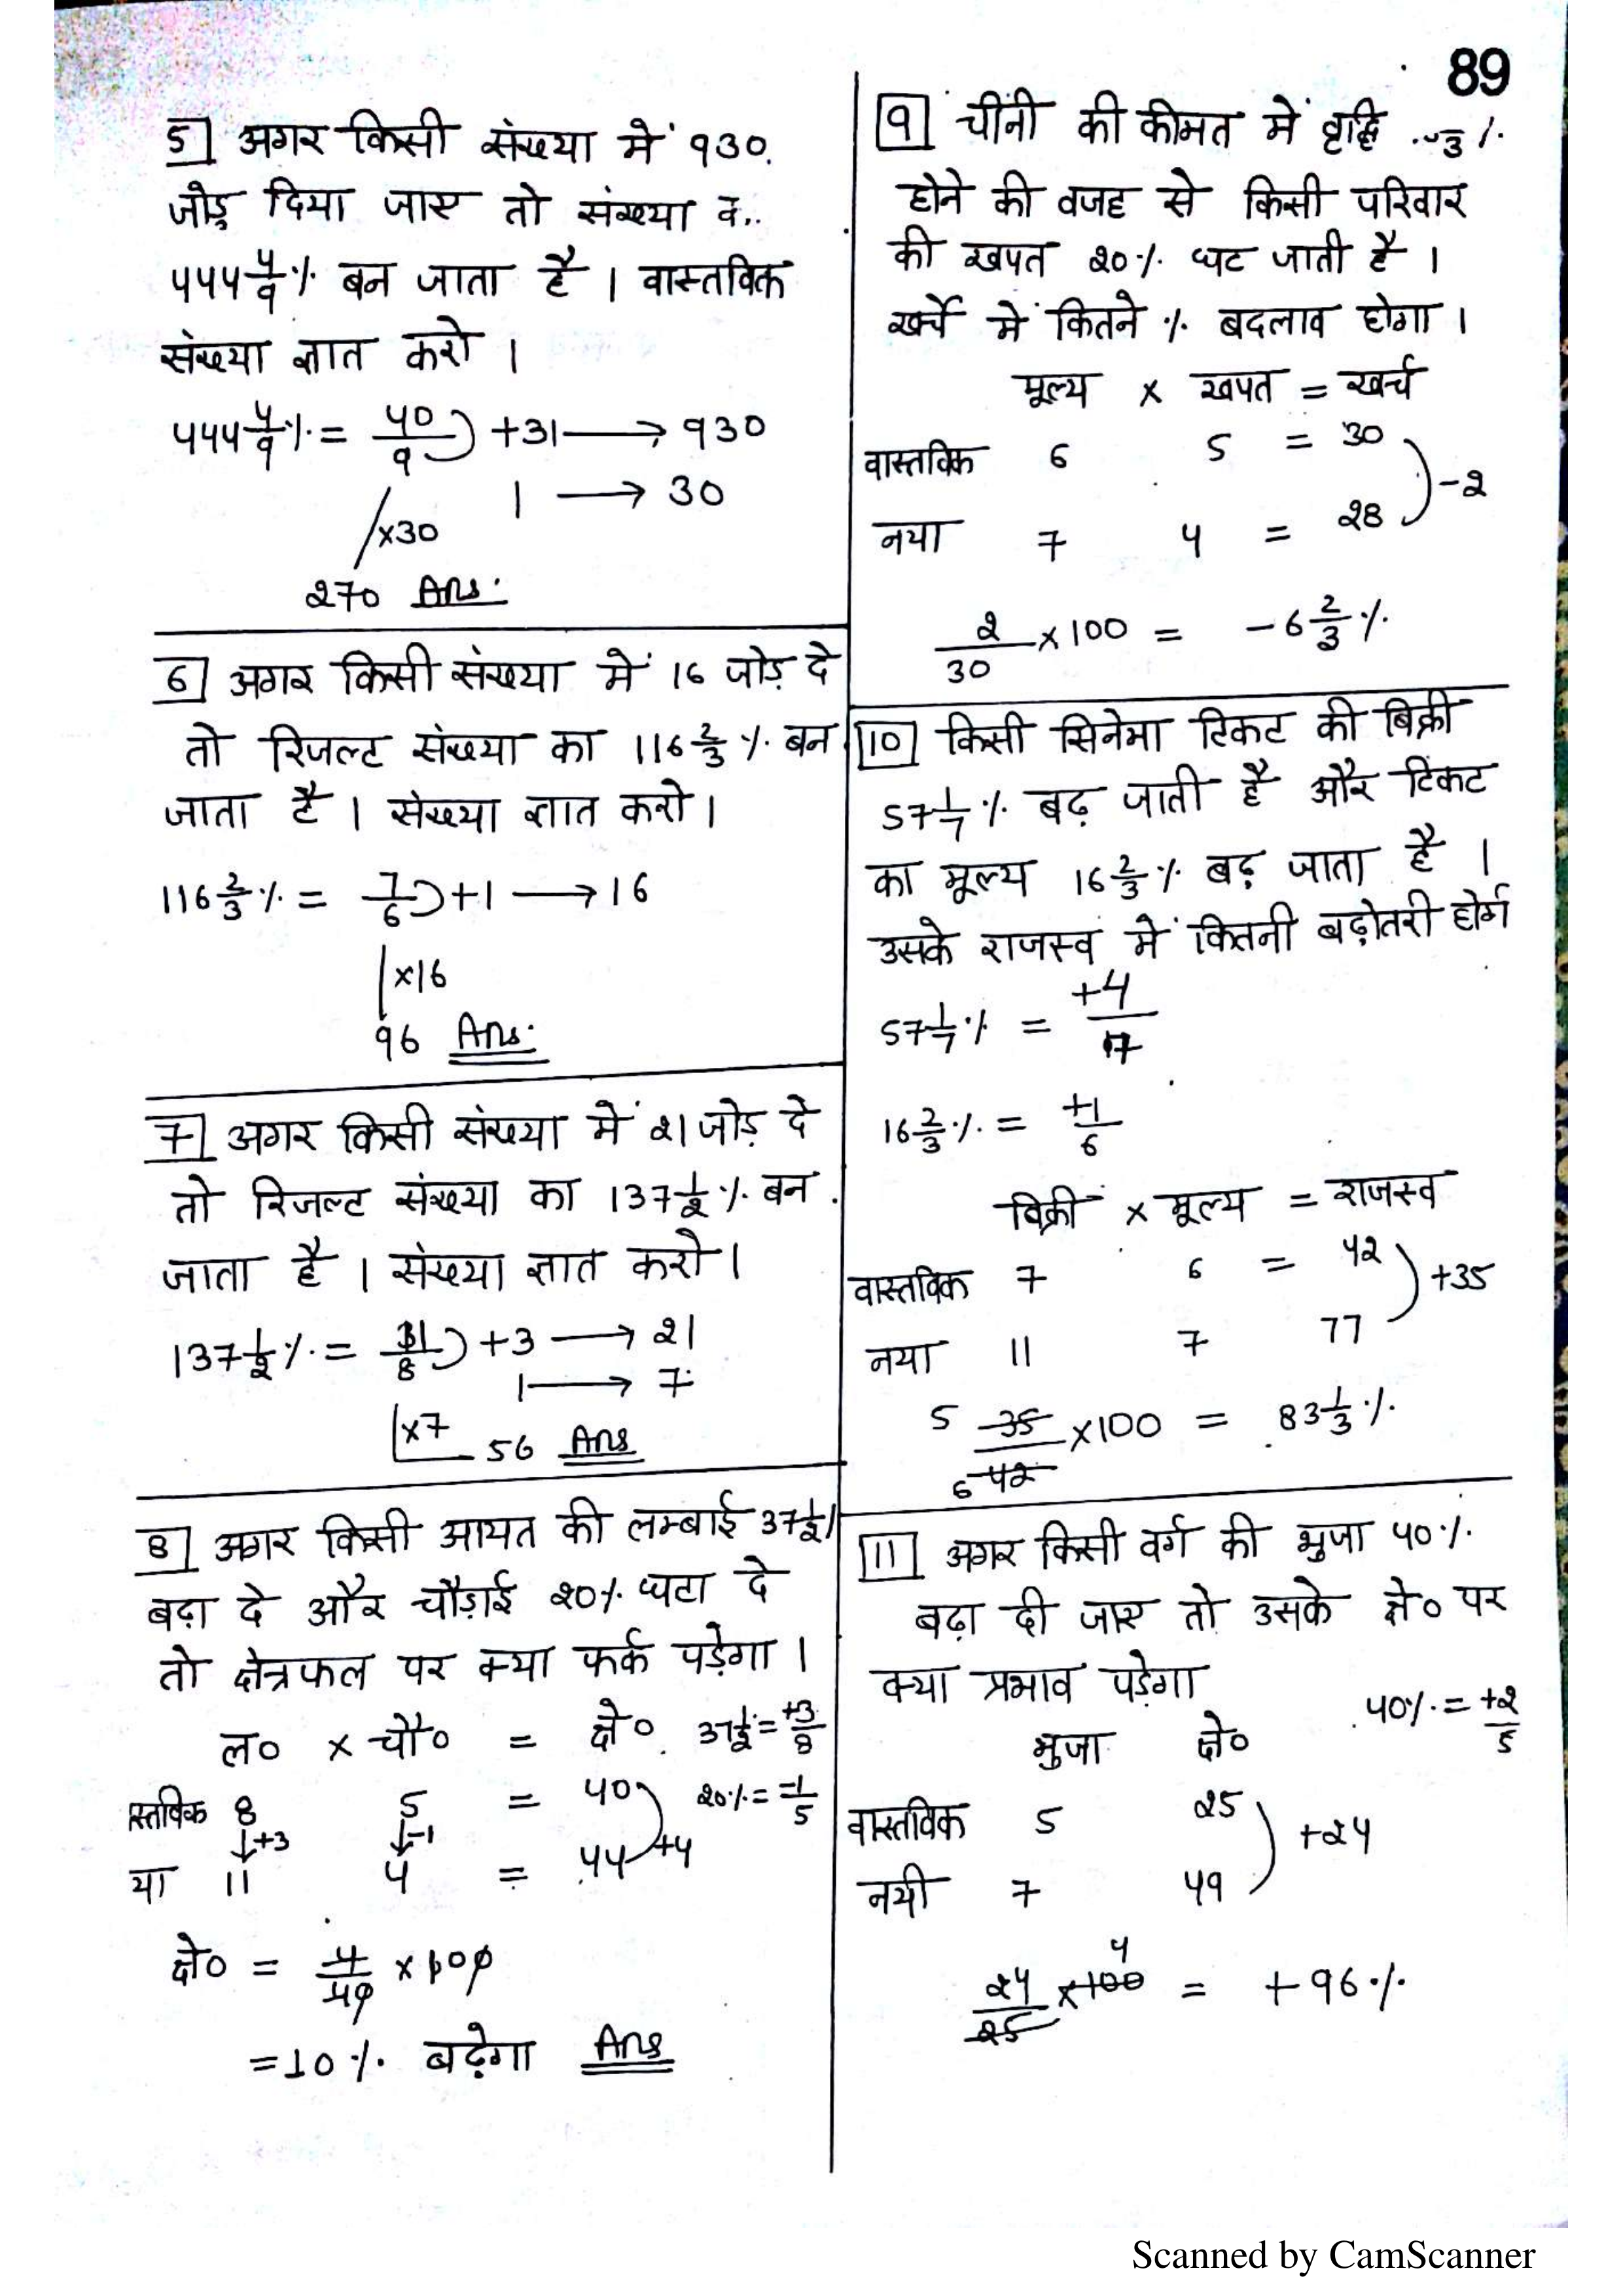 89
5] अगर किसी संख्या में 930
जोड़ दिया जाए तो संख्या
444 4/9 % बन जाता है । वास्तविक
संख्या ज्ञात करो ।
444 4/9 % = 40/9 ) +31 → 930
1 → 30
×30
270 Ans.
6] अगर किसी संख्या में 16 जोड़ दे
तो रिजल्ट संख्या का 116 2/3 % बन
जाता है । संख्या ज्ञात करो ।
116 2/3 % = 7/6 ) +1 → 16
×16
96 Ans.
7] अगर किसी संख्या में 21 जोड़ दे
तो रिजल्ट संख्या का 137 1/2 % बन
जाता है । संख्या ज्ञात करो ।
137 1/2 % = 11/8 ) +3 → 21
1 → 7
×7 56 Ans
8] अगर किसी आयत की लम्बाई 37 1/2 %
बढ़ा दे और चौड़ाई 20% घटा दे
तो क्षेत्रफल पर क्या फर्क पड़ेगा ।
ल० × चौ० = क्षे० 37 1/2 = +3/8
स्तविक 8 5 = 40 20% = -1/5
↓+3 ↓-1 ) +4
या 11 4 = 44
क्षे० = 4/40 × 100
= 10 % बढ़ेगा Ans
9 चीनी की कीमत में वृद्धि 3 %
होने की वजह से किसी परिवार
की खपत 20% घट जाती है ।
खर्चे में कितने % बदलाव होगा ।
मूल्य × खपत = खर्च
वास्तविक 6 5 = 30
) -2
नया 7 4 = 28
2/30 × 100 = -6 2/3 %
10 किसी सिनेमा टिकट की बिक्री
57 1/7 % बढ़ जाती है और टिकट
का मूल्य 16 2/3 % बढ़ जाता है ।
उसके राजस्व में कितनी बढ़ोतरी होगी
57 1/7 % = +4/7
16 2/3 % = +1/6
बिक्री × मूल्य = राजस्व
वास्तविक 7 6 = 42
) +35
नया 11 7 77
5 35/42 6 × 100 = 83 1/3 %
11 अगर किसी वर्ग की भुजा 40%
बढ़ा दी जाए तो उसके क्षे० पर
क्या प्रभाव पड़ेगा
40% = +2/5
भुजा क्षे०
वास्तविक 5 25
) +24
नयी 7 49
24/25 × 100 4 = +96%
Scanned by CamScanner